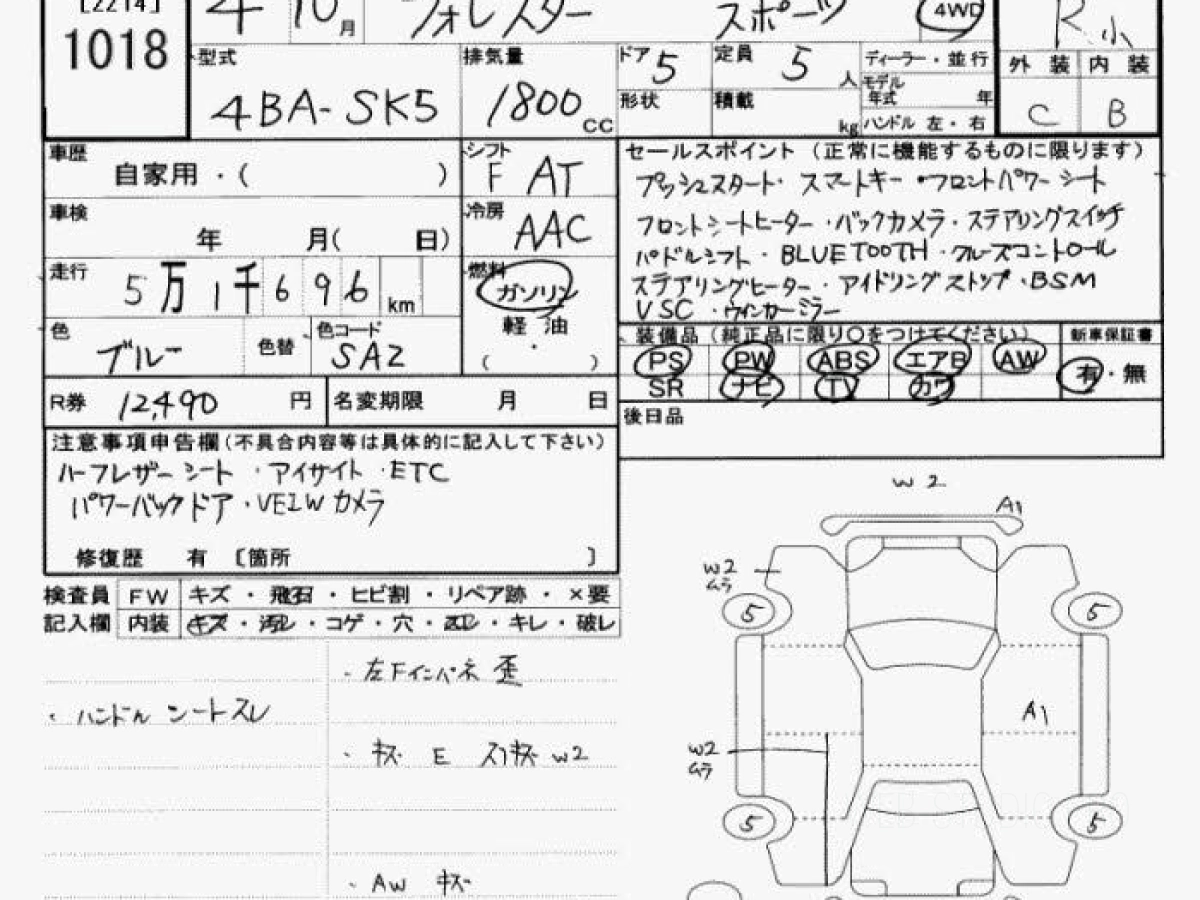 [2214]
1018
4年 10月
フォレスター
スポーツ
4WD
R 小
型式
4BA-SK5
排気量
1800 CC
ドア 5
定員 5 人
ディーラー・並行
モデル年式 年
形状
積載 kg
ハンドル 左・右
外装 内装
C B
車歴
自家用・( )
シフト
F AT
車検
年 月( 日)
冷房
AAC
走行
5万1千696 km
燃料
ガソリン
軽油
・
( )
色
ブルー
色替
色コード
SAZ
R券 12,490 円
名変期限 月 日
セールスポイント(正常に機能するものに限ります)
プッシュスタート・スマートキー・フロントパワーシート
フロントシートヒーター・バックカメラ・ステアリングスイッチ
パドルシフト・BLUETOOTH・クルーズコントロール
ステアリングヒーター・アイドリングストップ・BSM
VSC・ウィンカーミラー
装備品(純正品に限り○をつけてください)
新車保証書
PS PW ABS エアB AW
有・無
SR ナビ TV カワ
後日品
注意事項申告欄(不具合内容等は具体的に記入して下さい)
ハーフレザーシート・アイサイト・ETC
パワーバックドア・VEIWカメラ
修復歴 有 〔箇所 〕
検査員 FW キズ・飛石・ヒビ割・リペア跡・×要
記入欄 内装 キズ・汚レ・コゲ・穴・スレ・キレ・破レ
・左Fインパネ 歪
・ハンドル シートスレ
・キズ E スリキズ W2
・AW キズ
W2
A1
W2
ムラ
5
5
A1
W2
ムラ
5
5